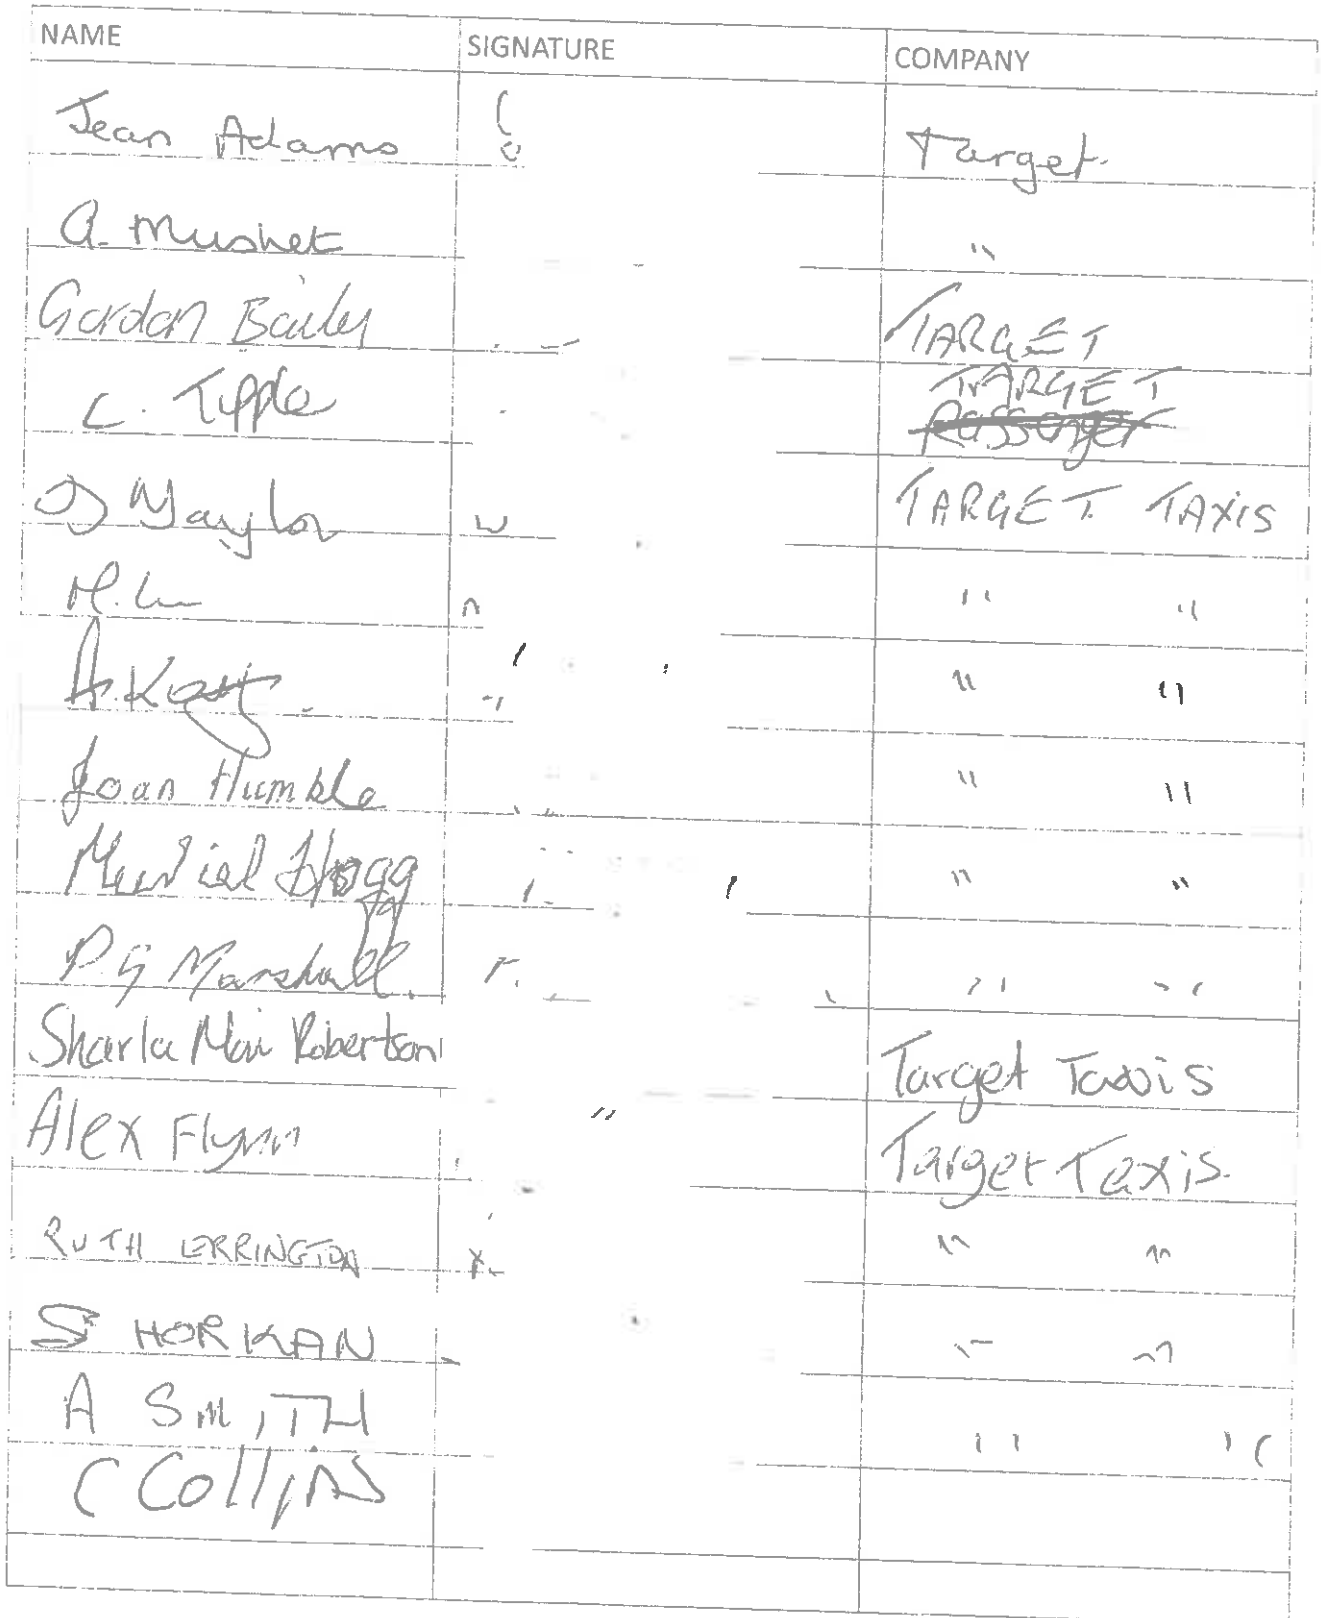 NAME SIGNATURE COMPANY
Jean Adams Target.
A. Mushet "
Gordon Baily TARGET
C. Tipple TARGET
Passenger
TARGET TAXIS
M. " "
A. " "
Joan Humble " "
Hogg " "
P.G Marshall. " "
Sharla Mai Robertson Target Taxis
Alex Flynn Target Taxis.
RUTH ERRINGTON " "
S HORKAN " "
A SMITH " "
C Collins